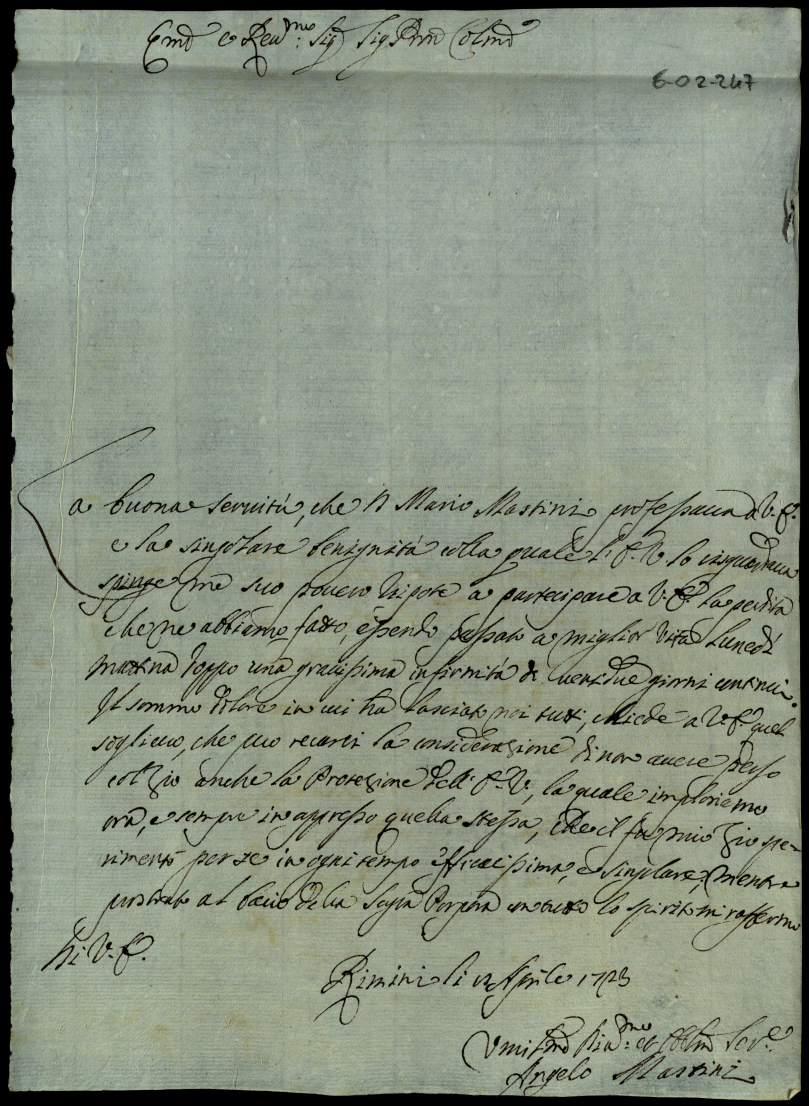 Emo e Reumo: Sig Sig Prne Colmo
6-02-247
La buona seruitù, che N Mario Mastini professaua a V. E.
e la singolare benignità colla quale l'E. V. lo risguardaua
spinge me suo pouero Nipote a partecipare a V. E. la perdita
che ne abbiamo fatto, essendo passato a miglior vita Lunedì
mattina doppo una grauissima infirmità di uentidue giorni continui.
Il sommo dolore in cui ha lasciati noi tutti, chiede a V. E. quel
sollieuo, che può recarci la considerazione di non auere perso
col Zio anche la Protezione dell' E. V., la quale imploriamo
ora, e sempre in appresso quella stessa, che il fu mio Zio spe-
rimentò per se in ogni tempo efficacissima, e singolare; mentre
prostrato al bacio della Sagra Porpora con tutto lo spirito mi raffermo
Di V. E.
Rimini li 12 Aprile 1723
Vmilmo Diumo: et Obblmo Serue
Angelo Mastini